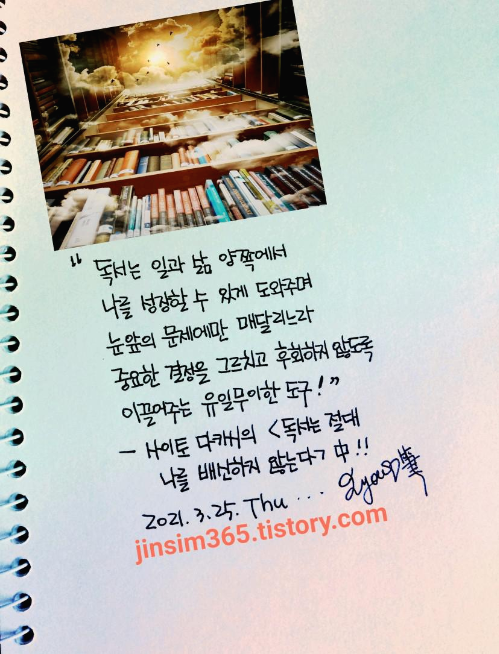 " 독서는 일과 삶 양쪽에서
나를 성장할 수 있게 도와주며
눈앞의 문제에만 매달리느라
중요한 결정을 그르치고 후회하지 않도록
이끌어주는 유일무이한 도구! "
- 사이토 다카시의 <독서는 절대
나를 배신하지 않는다> 中!!
2021. 3. 25. Thu ...
jinsim365.tistory.com